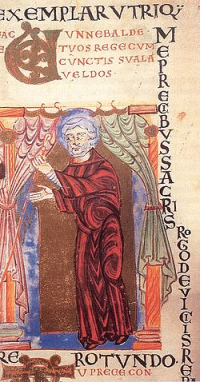 EXEMPLAR UTRIQ;
FAC CUNNEBALDE
TVOS REGE CVM
CVNCTIS SVALA
VELDOS
ME PRECIBUS SACRIS
ROGO DEVICTIS RE
RE ROTUNDO.
U PREGE CON